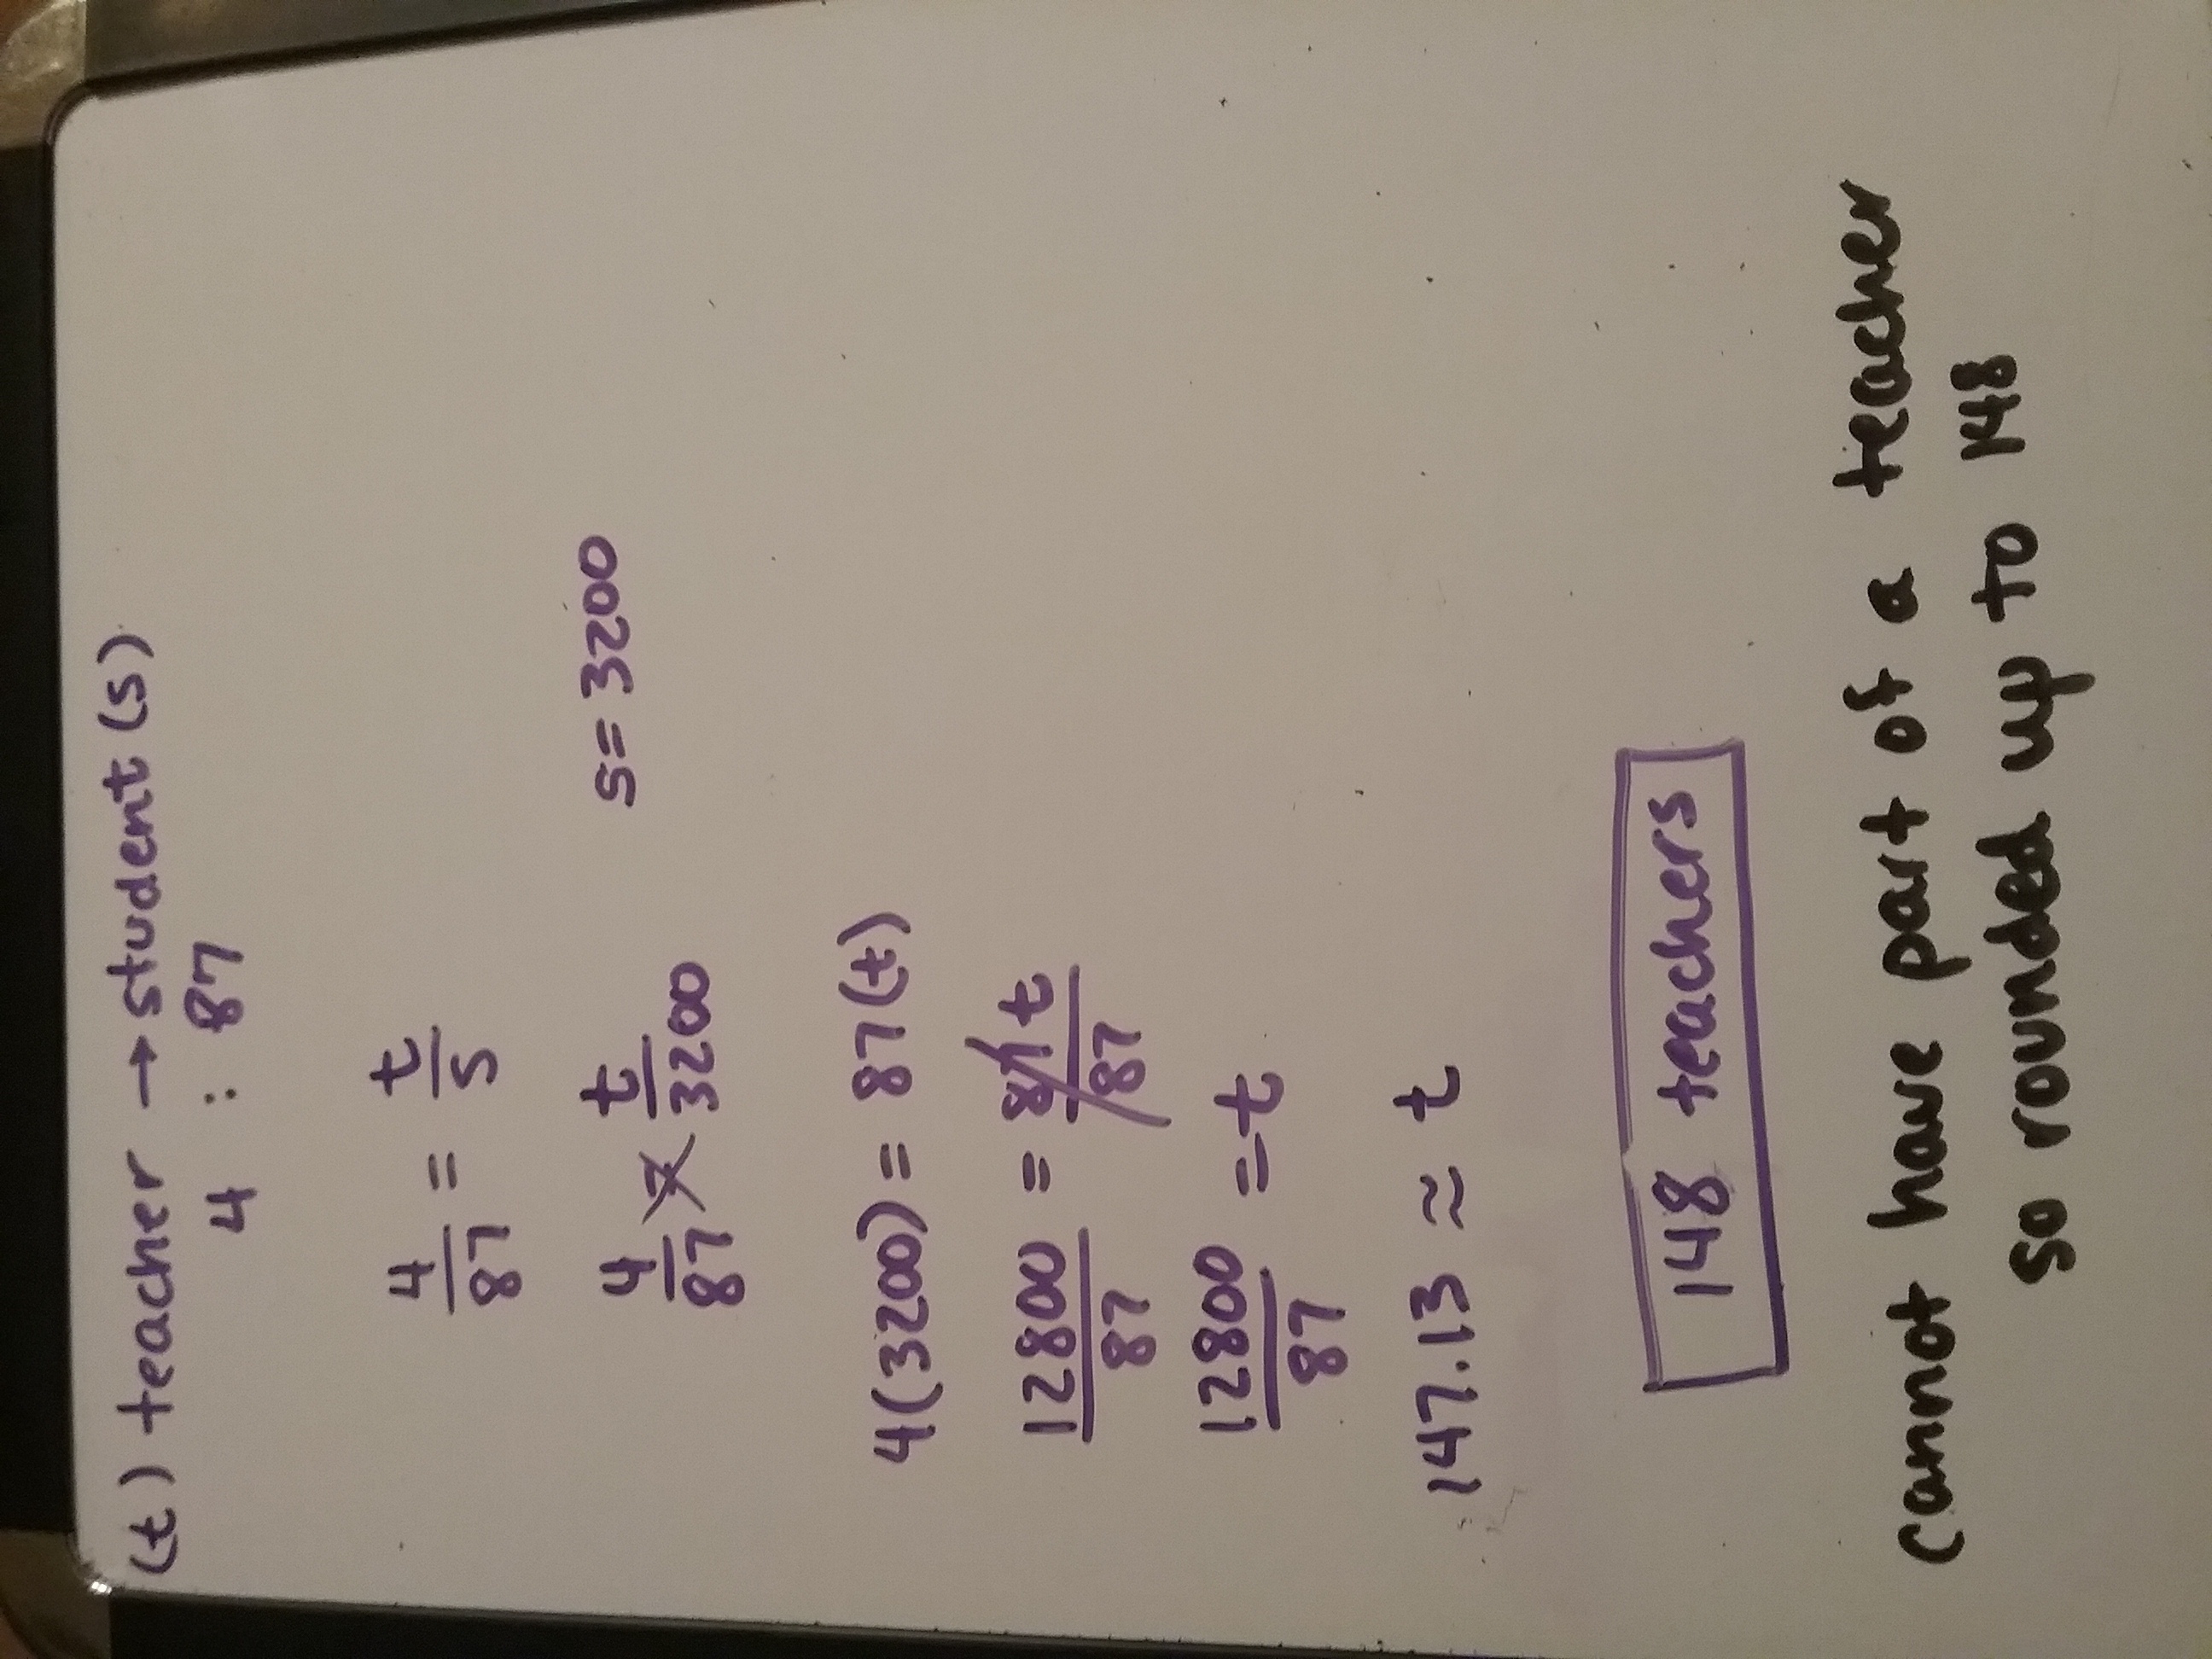 (t) teacher → student (s)
4 : 87
4/87 = t/s
4/87 × t/3200 s = 3200
4(3200) = 87(t)
12800/87 = 87t/87
12800/87 = t
147.13 ≈ t
148 teachers
Cannot have part of a teacher
so rounded up to 148